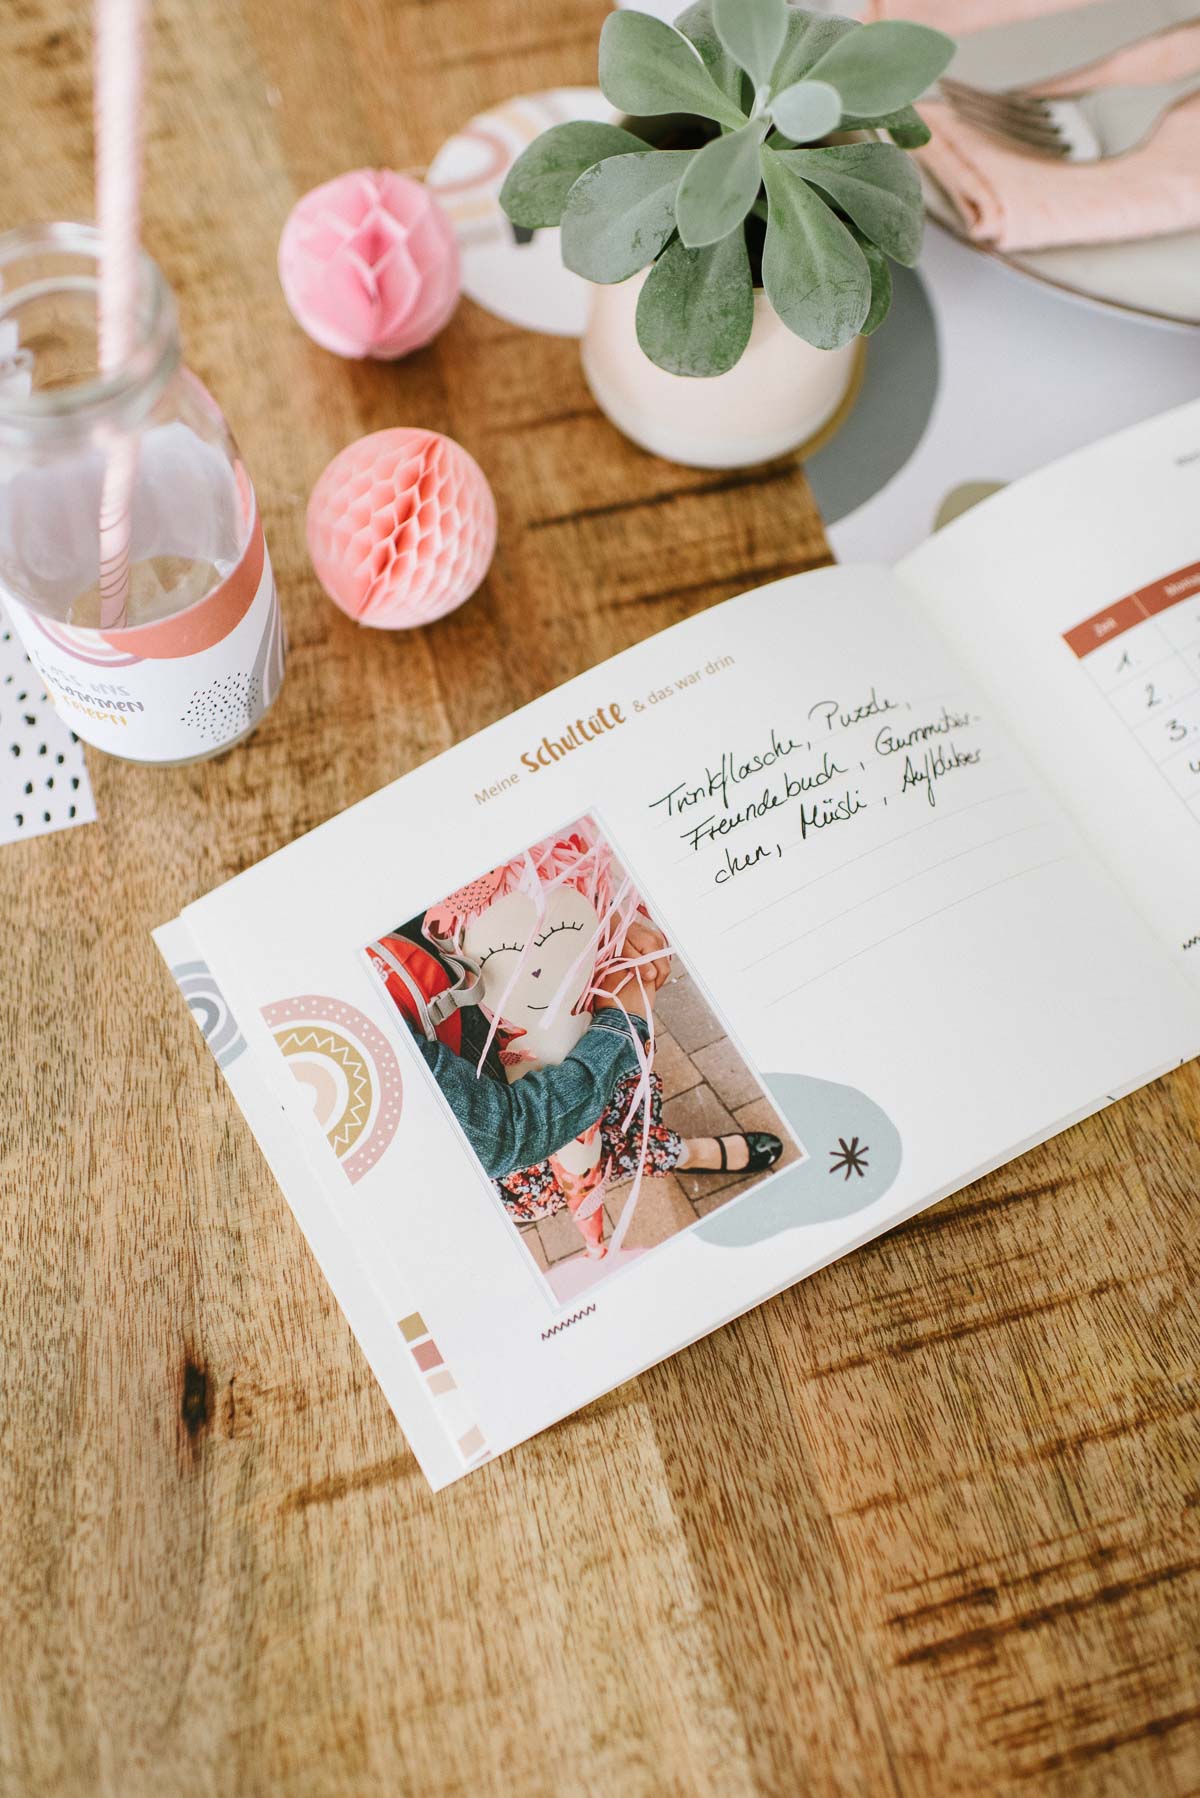 LASS UNS
ZUSAMMEN
FEIERN
Meine Schultüte & das war drin
Trinkflasche, Puzzle,
Freundebuch, Gummibär-
chen, Müsli, Aufkleber
Zeit
1.
2.
3.